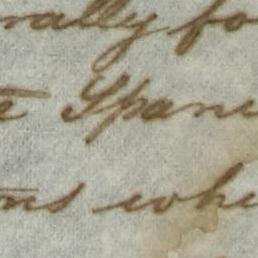 rally fo
e Spani
ns whi